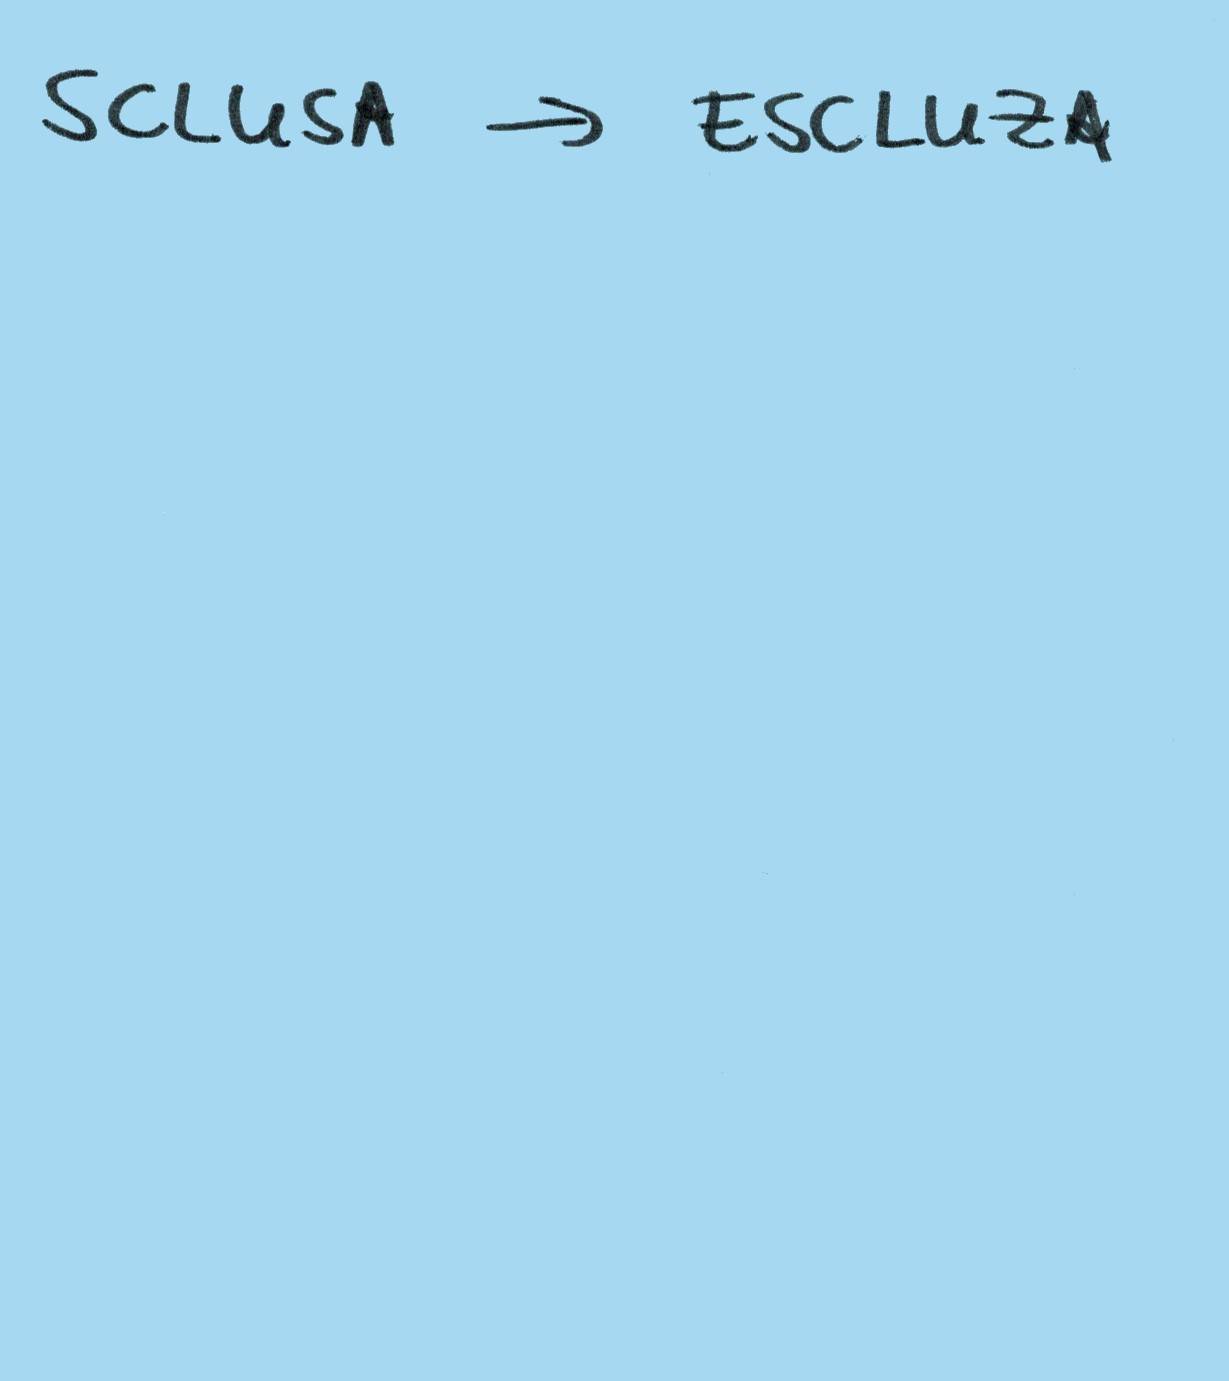 SCLUSA → ESCLUZA